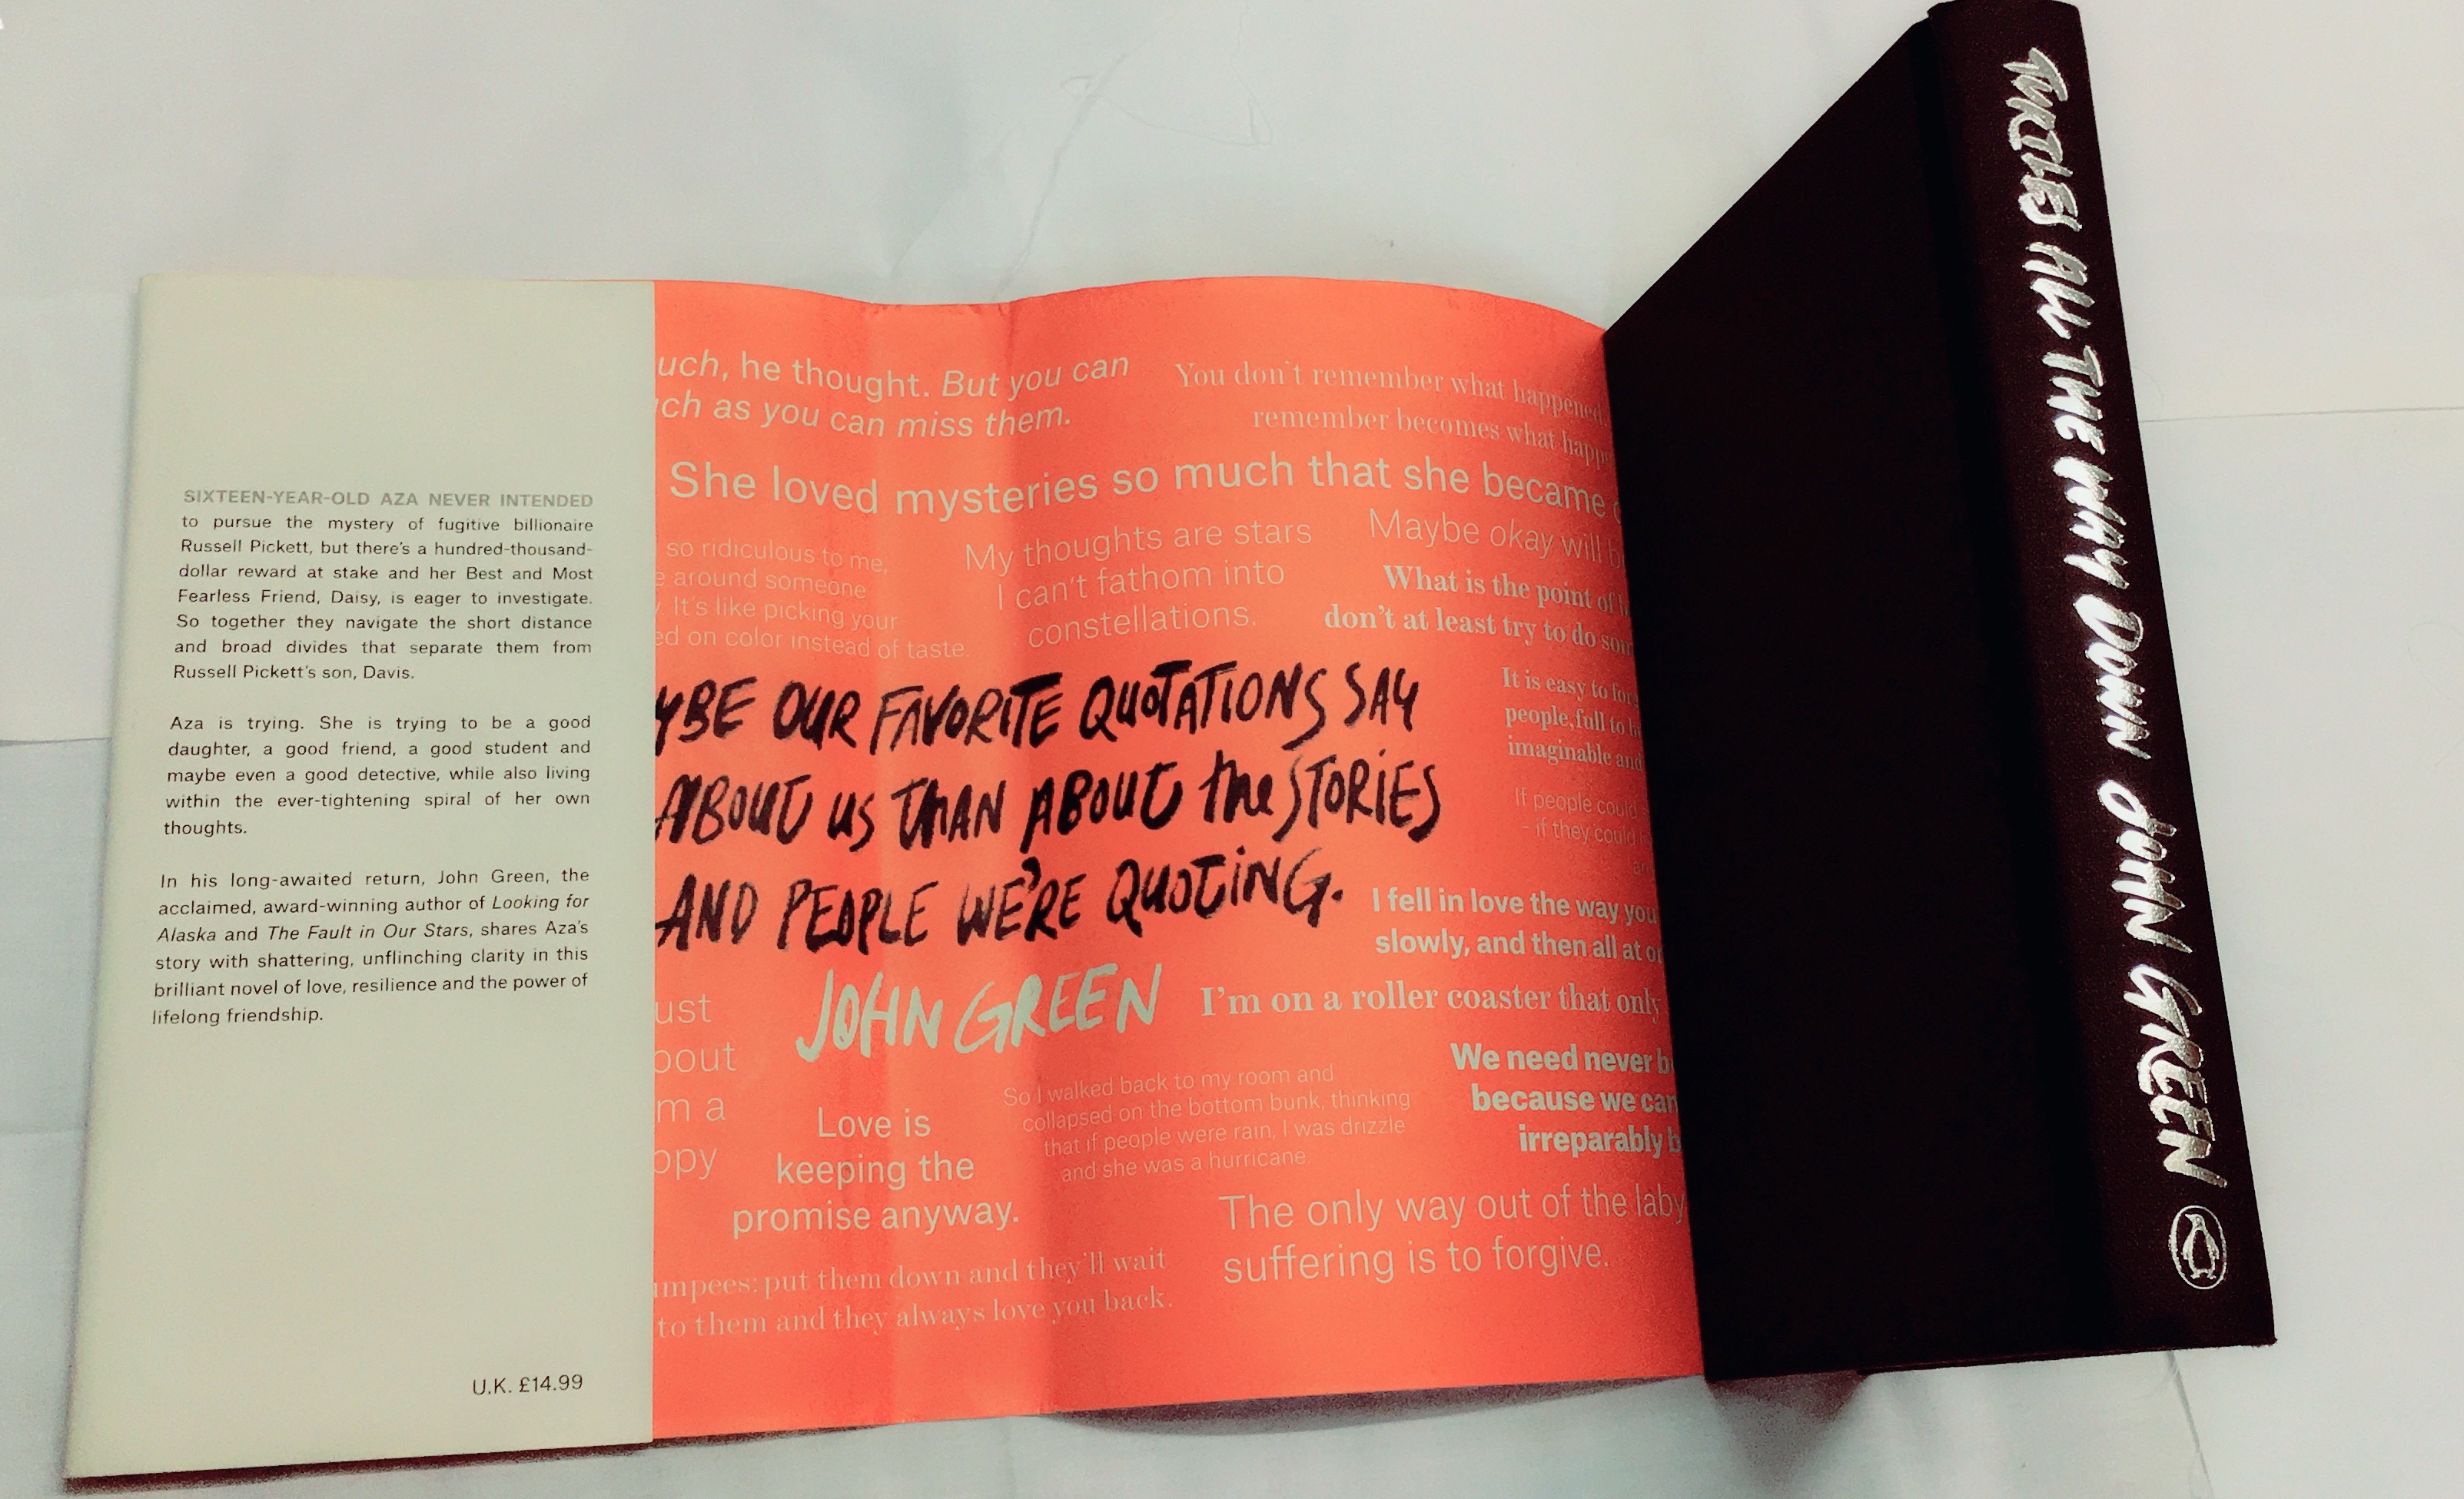 SIXTEEN-YEAR-OLD AZA NEVER INTENDED
to pursue the mystery of fugitive billionaire
Russell Pickett, but there's a hundred-thousand-
dollar reward at stake and her Best and Most
Fearless Friend, Daisy, is eager to investigate.
So together they navigate the short distance
and broad divides that separate them from
Russell Pickett's son, Davis.
Aza is trying. She is trying to be a good
daughter, a good friend, a good student and
maybe even a good detective, while also living
within the ever-tightening spiral of her own
thoughts.
In his long-awaited return, John Green, the
acclaimed, award-winning author of Looking for
Alaska and The Fault in Our Stars, shares Aza's
story with shattering, unflinching clarity in this
brilliant novel of love, resilience and the power of
lifelong friendship.
U.K. £14.99
uch, he thought. But you can
ch as you can miss them.
You don't remember what happened.
remember becomes what happ
She loved mysteries so much that she became
so ridiculous to me,
e around someone
. It's like picking your
ed on color instead of taste.
My thoughts are stars
I can't fathom into
constellations.
Maybe okay will b
What is the point of
don't at least try to do som
It is easy to forg
people, full to b
imaginable and
If people could
- if they could
YBE OUR FAVORITE QUOTATIONS SAY
ABOUT US THAN ABOUT the STORIES
AND PEOPLE WE'RE QUOTING.
JOHN GREEN
I fell in love the way you
slowly, and then all at o
I'm on a roller coaster that only
ust
bout
m a
ppy
Love is
keeping the
promise anyway.
So I walked back to my room and
collapsed on the bottom bunk, thinking
that if people were rain, I was drizzle
and she was a hurricane.
We need never b
because we can
irreparably b
The only way out of the laby
suffering is to forgive.
mpees: put them down and they'll wait
to them and they always love you back.
TURTLES ALL THE WAY DOWN JOHN GREEN